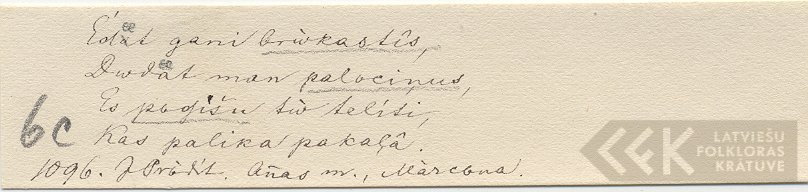 Ēdāt gani brīvkastīs,
Dodāt man palociņus,
Es pogišu to telīti,
Kas palika pakaļâ.
6c
1096. J Prōdit. Añas m., Mārcena.
LATVIEŠU
FOLKLORAS
KRĀTUVE